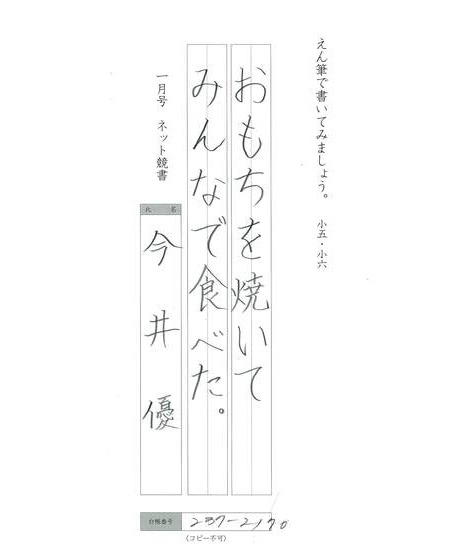 えん筆で書いてみましょう。 小五・小六
おもちを焼いて
みんなで食べた。
一月号 ネット競書
氏 名
今井優
台帳番号 237-2170
(コピー不可)